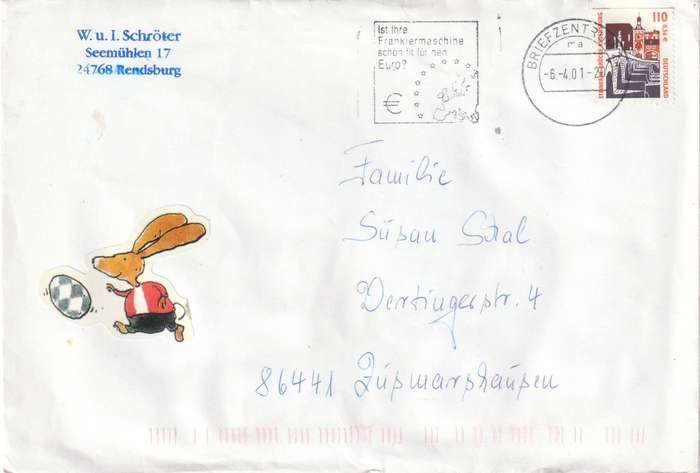 W. u. I. Schröter
Seemühlen 17
24768 Rendsburg
Ist Ihre
Frankiermaschine
schon fit für den
Euro?
€
BRIEFZENTRUM
ma
-6.-4.01-2
110
0,56 €
DEUTSCHLAND
Familie
Süßau Saal
Wertingerstr. 4
86441 Zusmarshausen